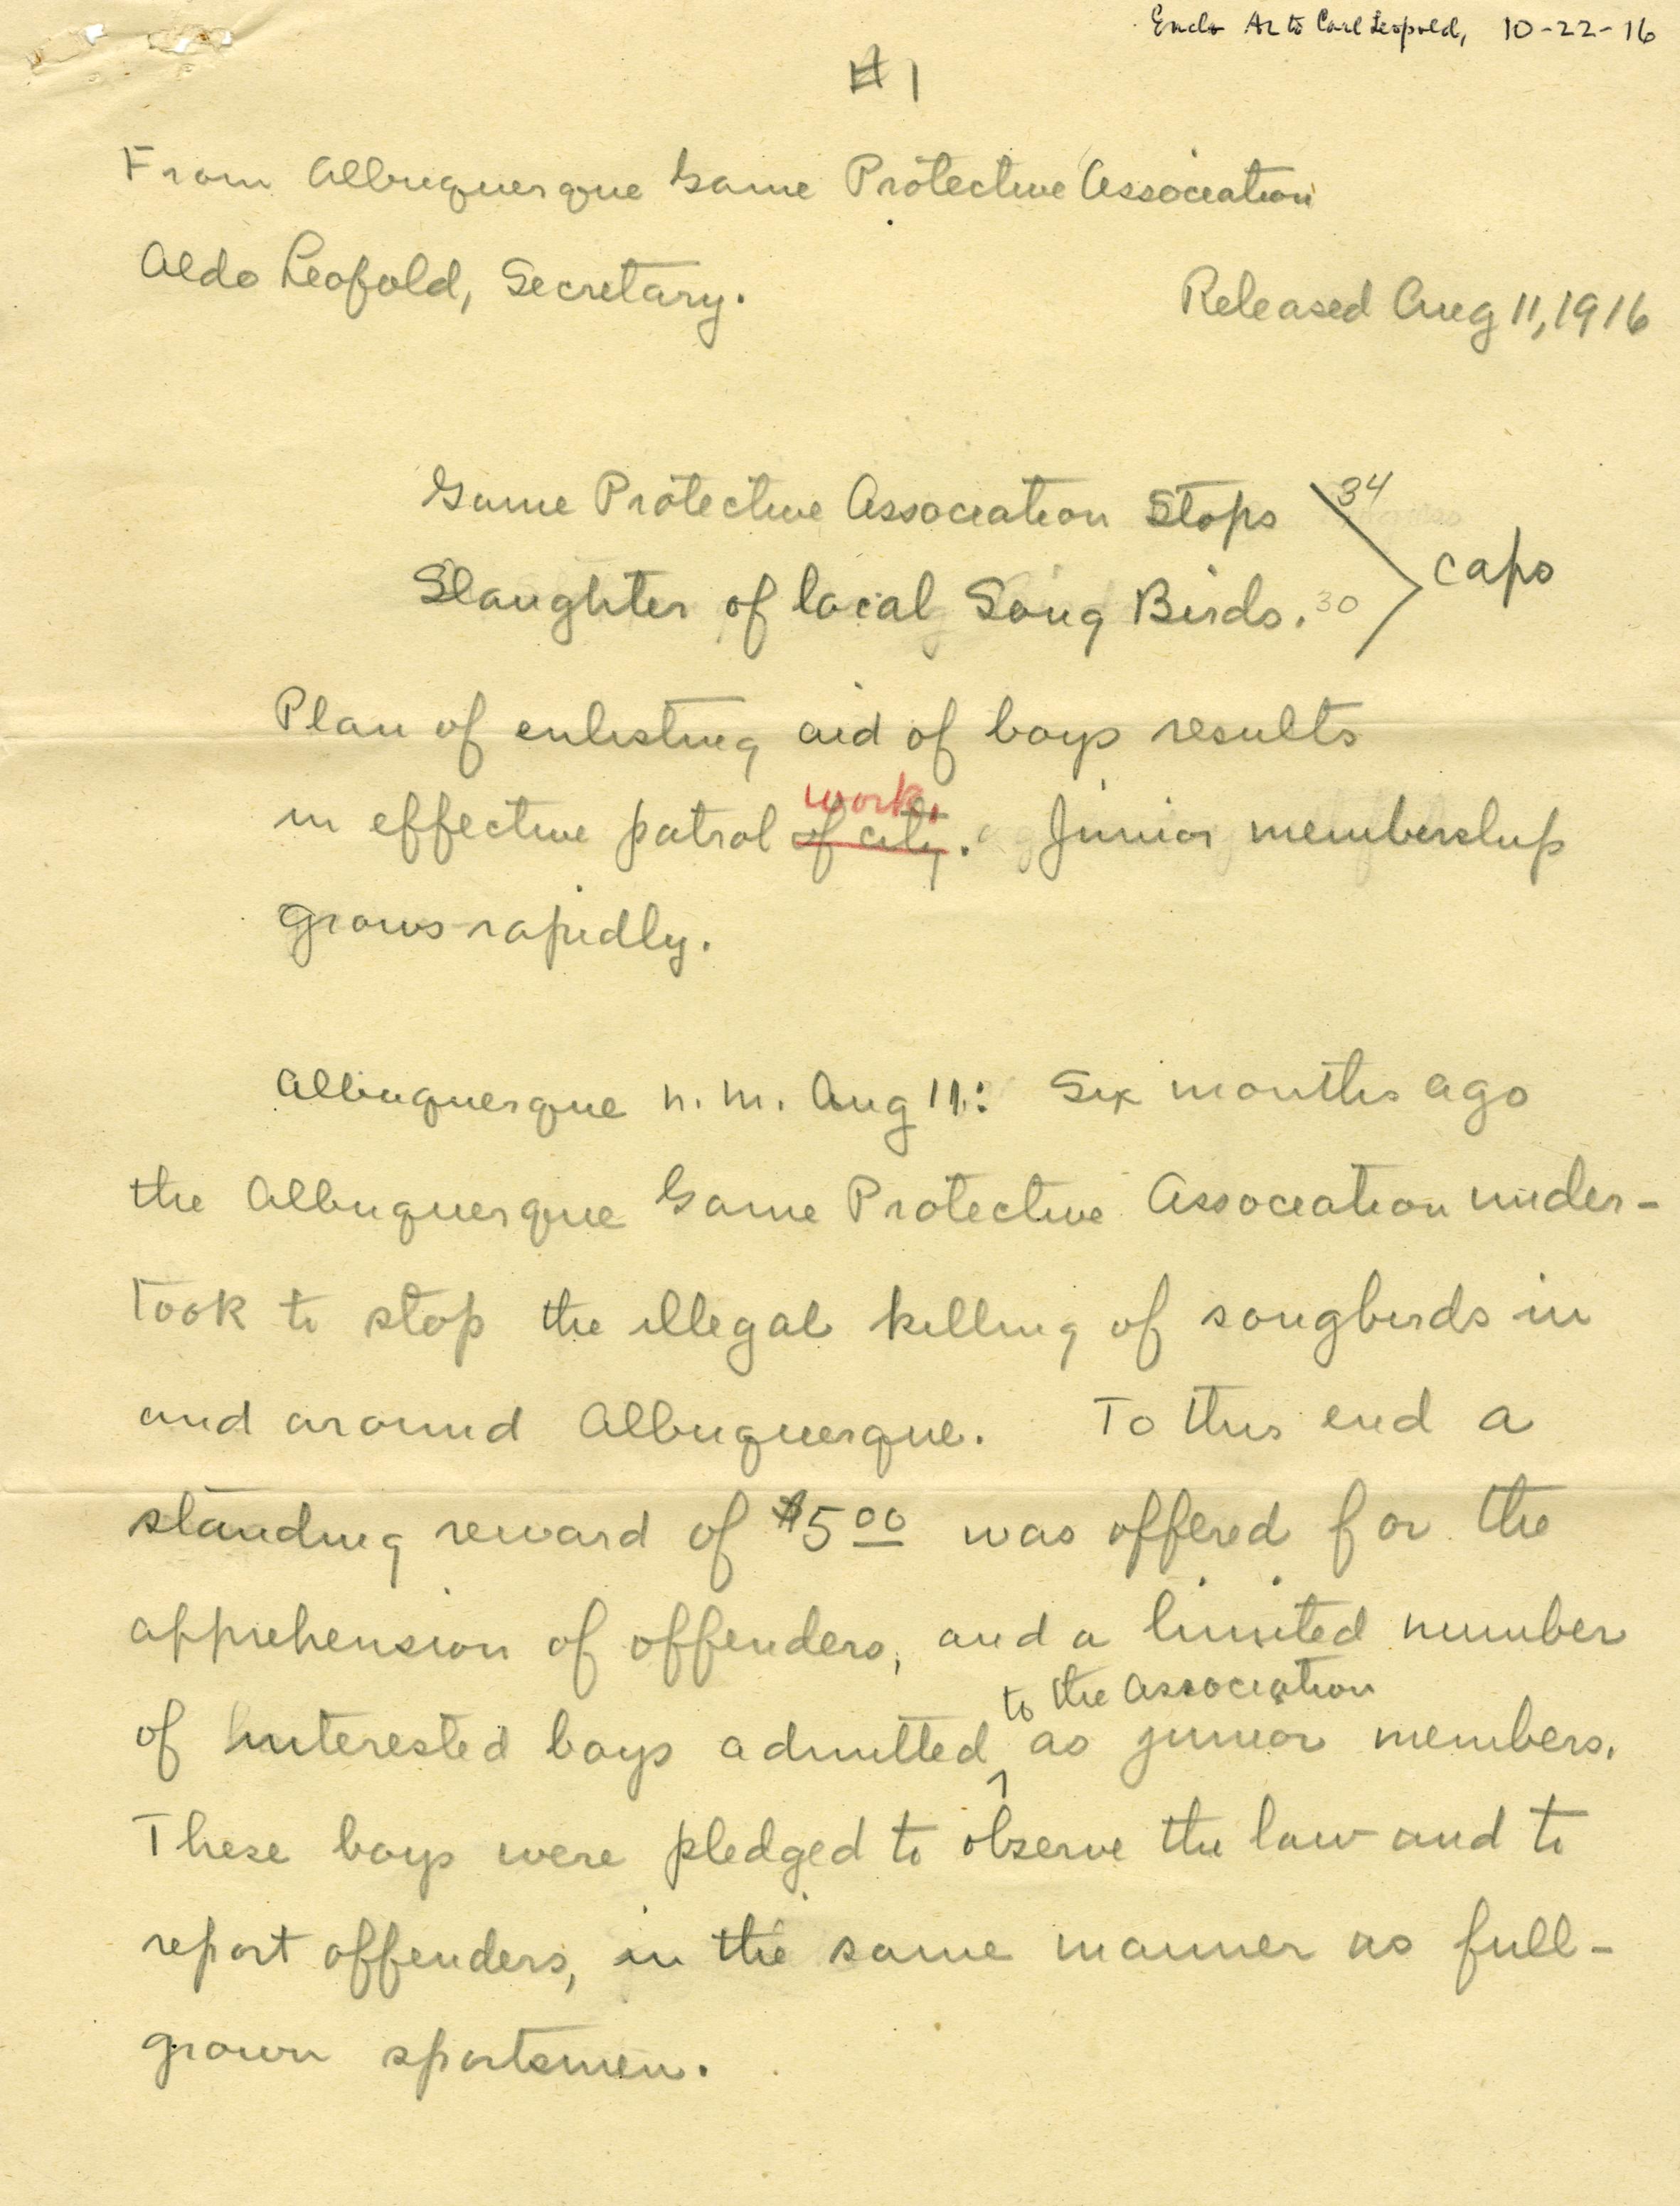 Encl. AL to Carl Leopold, 10-22-16
#1
From Albuquerque Game Protective Association
Aldo Leopold, Secretary.
Released Aug 11, 1916
Game Protective Association Stops 34
Slaughter of local Song Birds. 30
caps
Plan of enlisting aid of boys results
work.
in effective patrol of city. Junior membership
grows rapidly.
Albuquerque N.M. Aug 11: Six months ago
the Albuquerque Game Protective Association under-
took to stop the illegal killing of songbirds in
and around Albuquerque. To this end a
standing reward of $5 00 was offered for the
apprehension of offenders, and a limited number
to the Association
of interested boys admitted ^ as junior members.
These boys were pledged to observe the law and to
report offenders, in the same manner as full-
grown sportsmen.